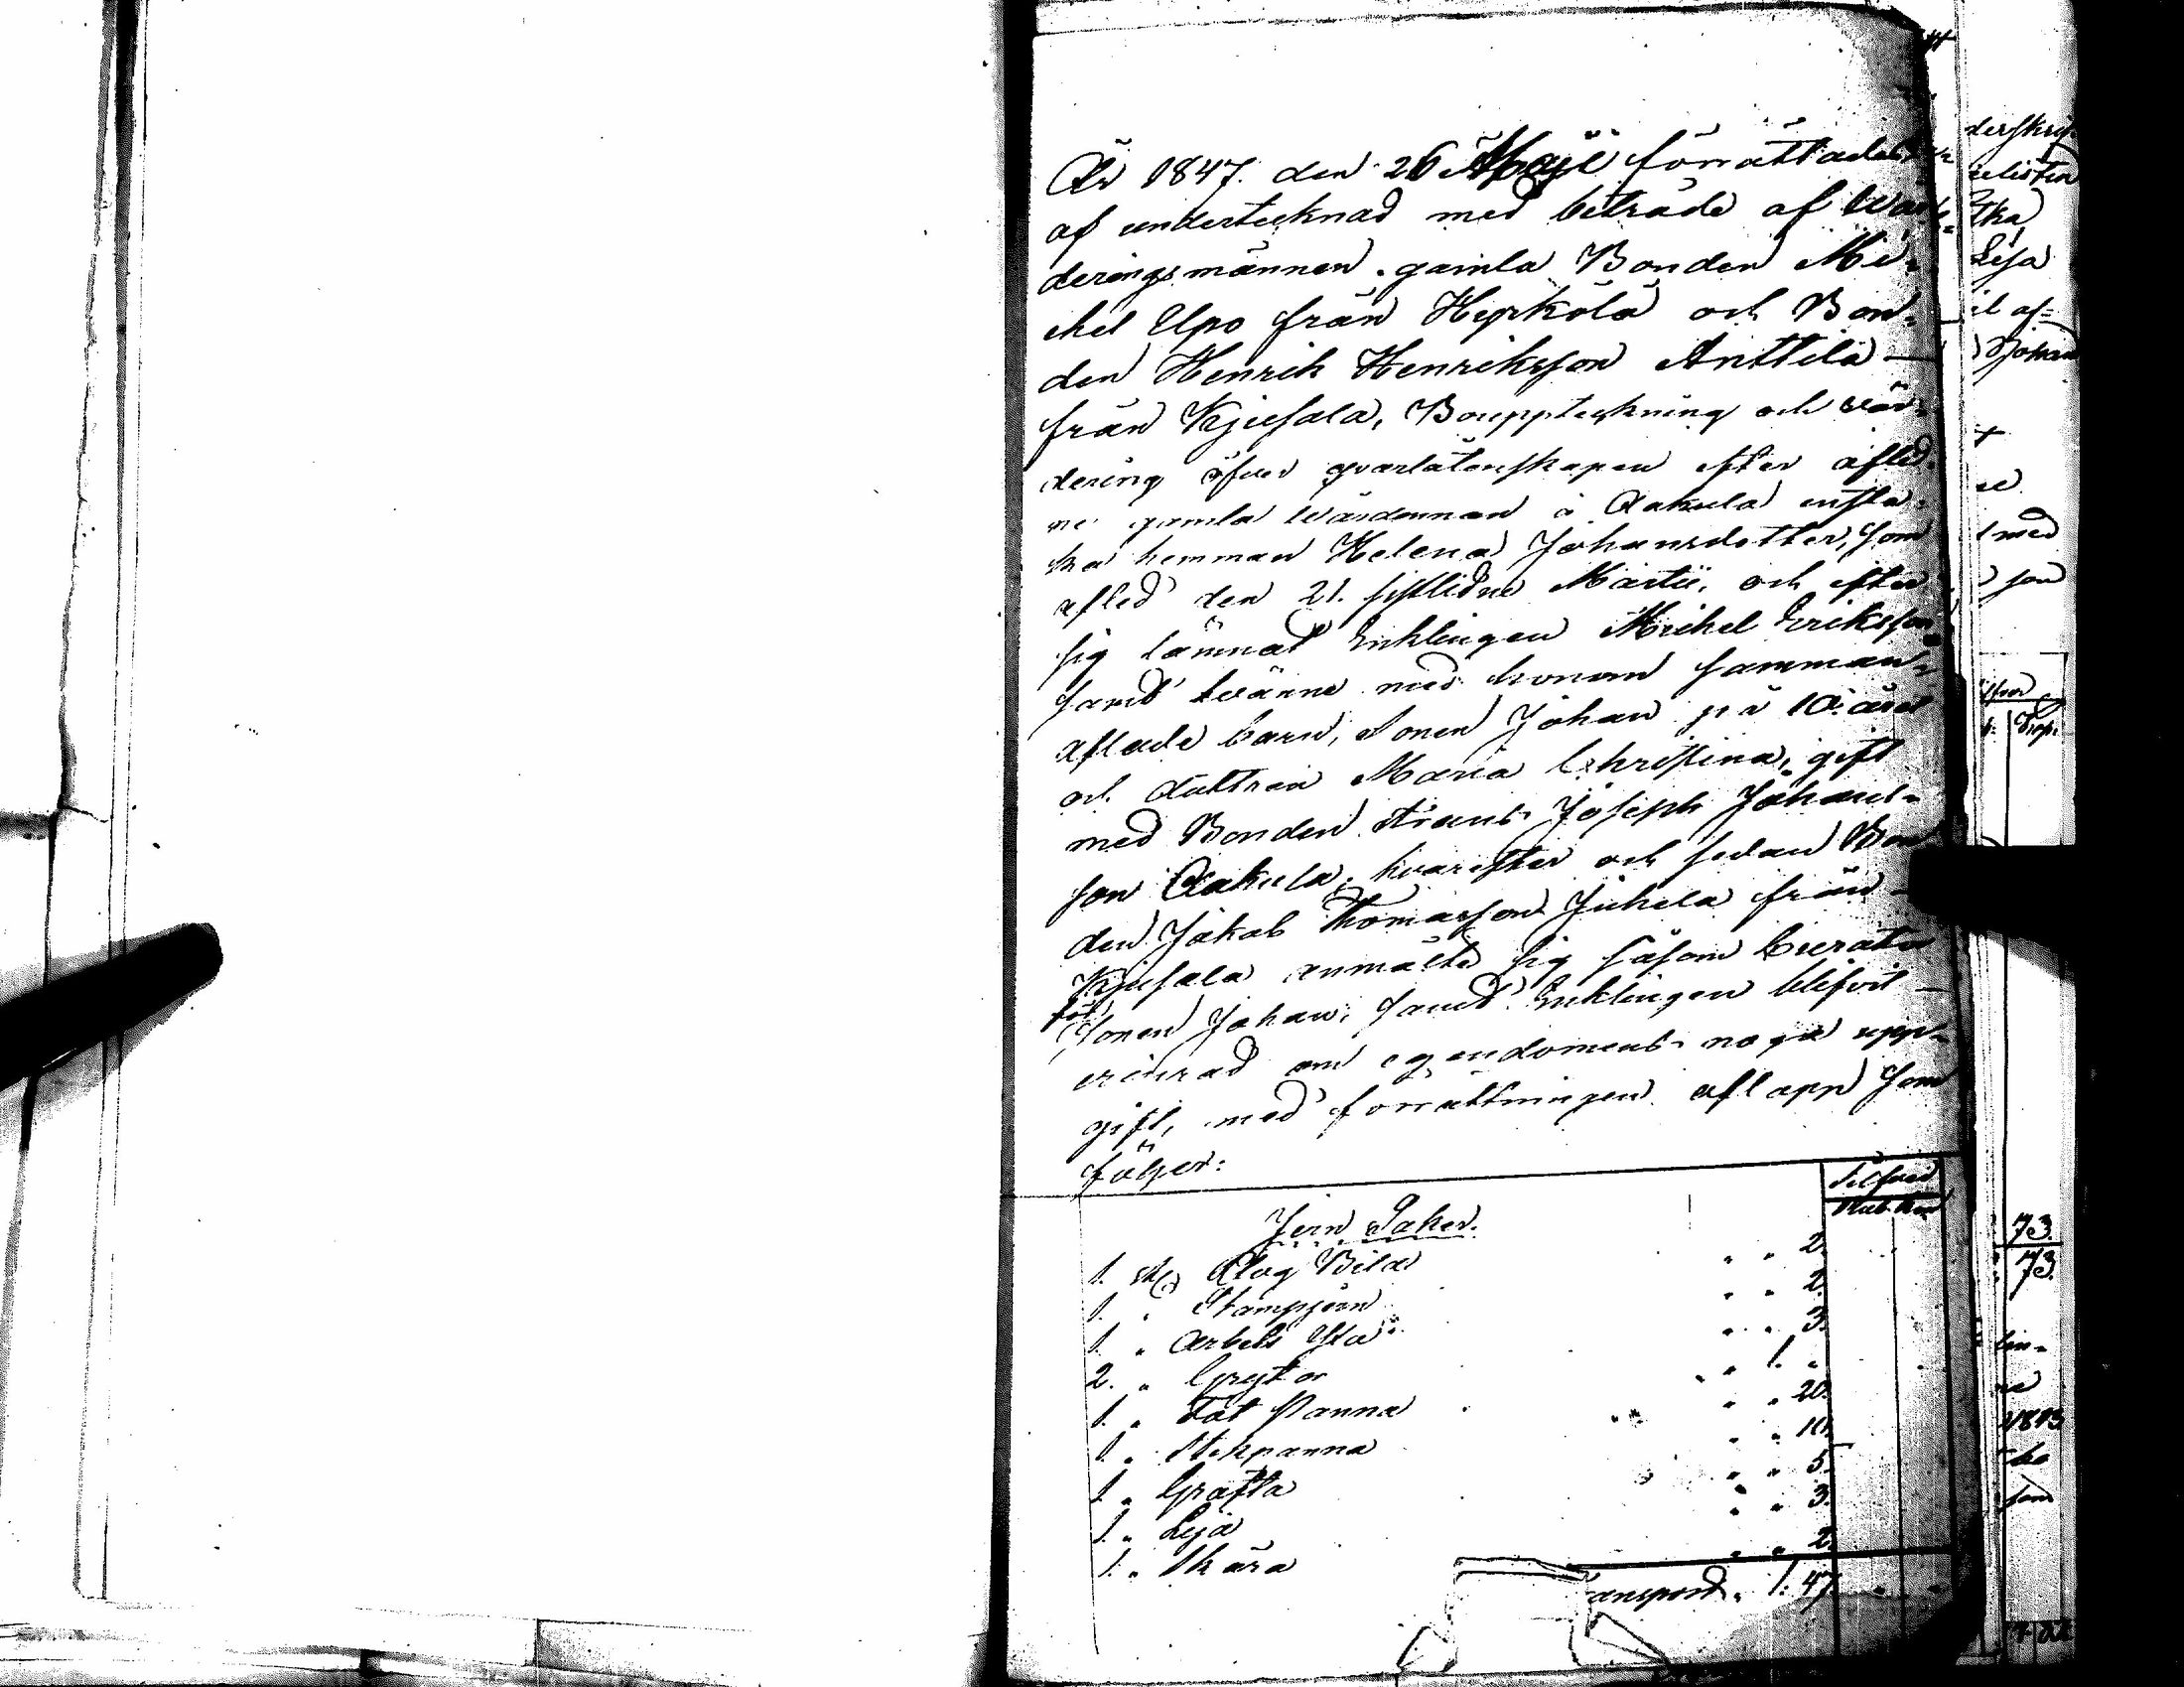 År 1847. den 26 Maji förrättades
af undertecknad med biträde af Wär-
deringsmännen gamla Bonden Mi-
chel Upo från Hyrkölä och Bon-
den Henrik Henriksson Anttila
från Kjusala, Bouppteckning och vär-
dering öfver qvarlåtenskapen efter afled-
ne gamla Wärdinnan å Aakula
hemman Helena Johansdotter, som
afled den 21. sistlidne Martii, och efter
sig lämnat Enklingen Michel Eriksson
samt tvänne med honom samman-
aflade barn, Sonen Johan på 10. året
och dottren Maria Christina, gift
med Bonden Joseph Johans-
son Aakula, hvarefter och sedan Bon-
den Jakob Thomasson Juhela från
Kjusala anmälte sig såsom Curator
för
Sonen Johan, samt Enklingen blifvit
erinrad om egendomens noga upp-
gift, med förrättningen aflopp som
följer:
Silfver
Rub. Kop
Jern Saker.
1. st. Plog Bilar " " 2.
1. " Stampjern " " 2.
1. " Arbets Yxa " " 3.
2. " Grytor " 1. "
1. " Fat Panna " " 20.
1. " Stekpanna " " 10.
1. " Graffla " " 5.
1. " Lija " " 3.
1. " Skära " " 2.
ansport " 1. 47. " "
derskrif-
Lisa
il af-
Johan
med
son
Kop.
73.
73.
1813
som